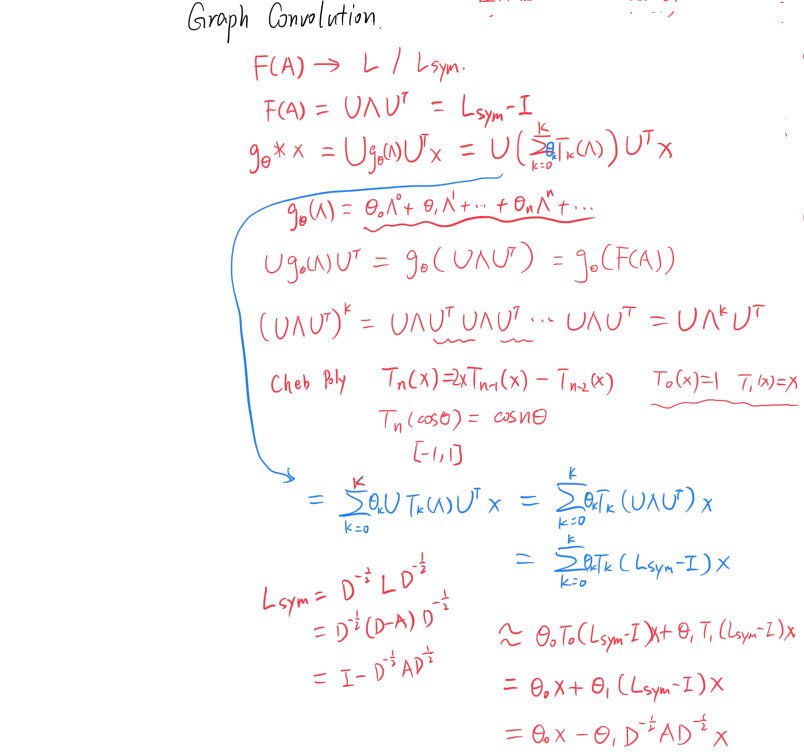 Graph Convolution.
F(A) → L / Lsym.
F(A) = UΛUᵀ = Lsym-I
gθ * x = Ugθ(Λ)Uᵀx = U(∑ₖ₌₀ᴷ θₖTₖ(Λ))Uᵀx
gθ(Λ) = θ₀Λ⁰ + θ₁Λ¹ + ··· + θₙΛⁿ + ···
Ugθ(Λ)Uᵀ = gθ(UΛUᵀ) = gθ(F(A))
(UΛUᵀ)ᵏ = UΛUᵀUΛUᵀ ··· UΛUᵀ = UΛᵏUᵀ
Cheb Poly Tₙ(x)=2xTₙ₋₁(x) - Tₙ₋₂(x) T₀(x)=1 T₁(x)=x
Tₙ(cosθ) = cosnθ
[-1,1]
= ∑ₖ₌₀ᴷ θₖUTₖ(Λ)Uᵀx = ∑ₖ₌₀ᴷ θₖTₖ(UΛUᵀ)x
= ∑ₖ₌₀ᴷ θₖTₖ(Lsym-I)x
Lsym = D^{-1/2}LD^{-1/2}
= D^{-1/2}(D-A)D^{-1/2}
= I - D^{-1/2}AD^{-1/2}
≈ θ₀T₀(Lsym-I)x + θ₁T₁(Lsym-I)x
= θ₀x + θ₁(Lsym-I)x
= θ₀x - θ₁D^{-1/2}AD^{-1/2}x